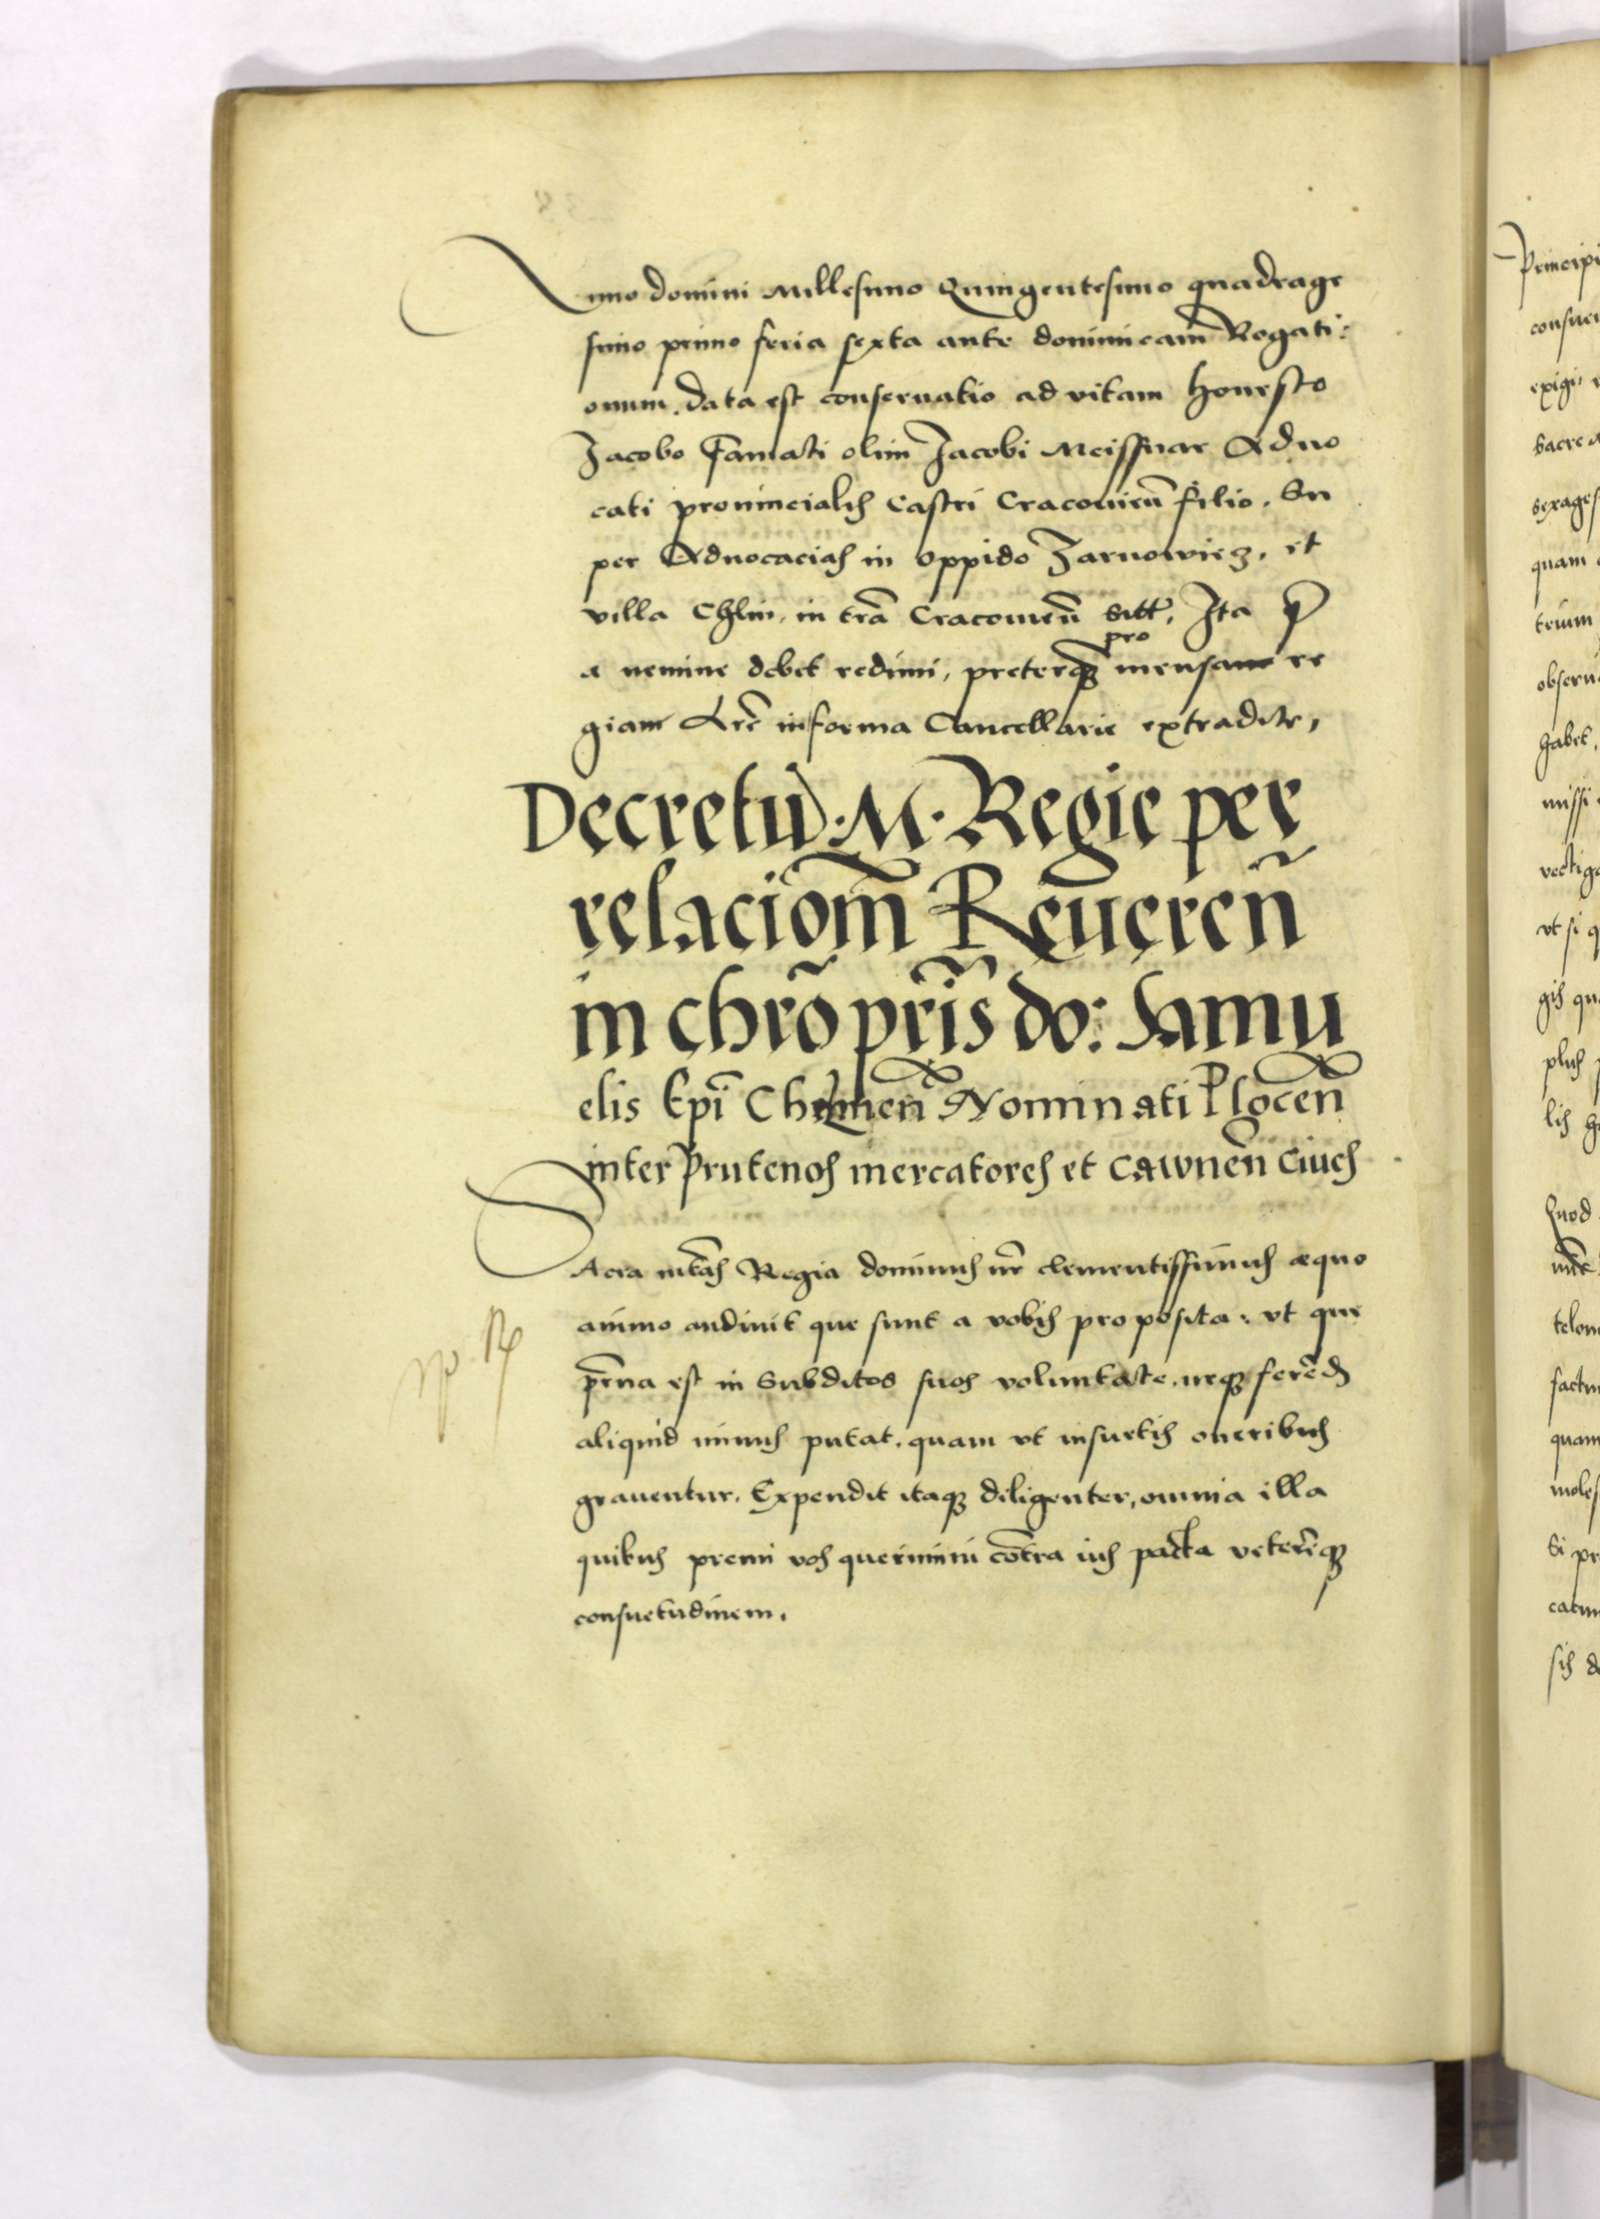 Anno domini Millesimo Quingentesimo quadrage
simo primo feria sexta ante dominicam Rogati:
onum. data est conservatio ad vitam honesto
Jacobo famati olim Jacobi Meissnar Aduo
cati prouincialis Castri Cracouien̄ filio. Su
per Aduocacias in oppido Zarnowiecz. et
villa Chlin. in trā Cracouien̄ sitt. Ita
a nemine debet redimi, preterq̨ pro mensam re
giam Lrē in forma Cancellarie extradite,
Decretū. M. Regie per
relaciom̄ Reueren̄
in chrō prīs do: Samu
elis Epī Chelmen̄ Nominati Plocen̄
inter Prutenos mercatores et Cawnen̄ Ciues
SAcra mtās Regia dominus nr̄ clementissimus aequo
animo audiuit que sunt a vobis proposita. vt que
pr̄na est in Subditos suos voluntate. neq̨ ferēd
aliquid minus putat. quam vt insuetis oneribus
grauentur. Expendit itaq̨ diligenter, omnia illa
quibus premi vos querimini cōtra ius pacta veterēq̨
consuetudinem.
Principi
consue
exigi
Sacre
sexages
quam
trium
obseru
habet,
missi
vectig
vt si q
gis qu
plus
lis
Quod
telon
factu
quam
moles
Si pr
catu
sis d